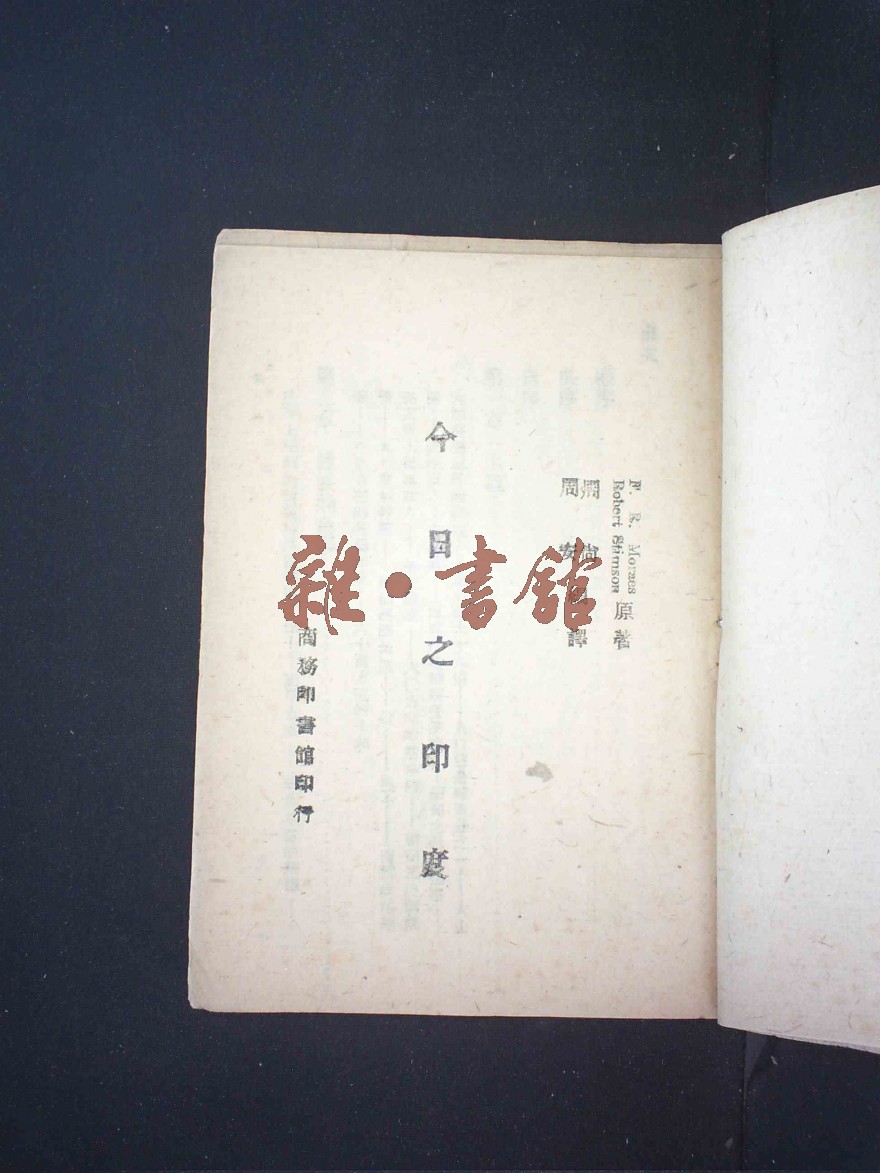 F. R. Moraes
Robert Stimson
原著
周尚
周安
譯
今日之印度
商務印書館印行
雜·書館